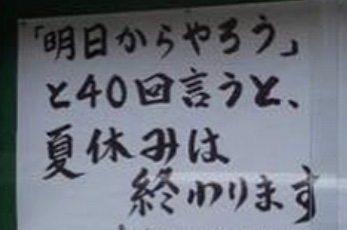 「明日からやろう」
と40回言うと、
夏休みは
終わります